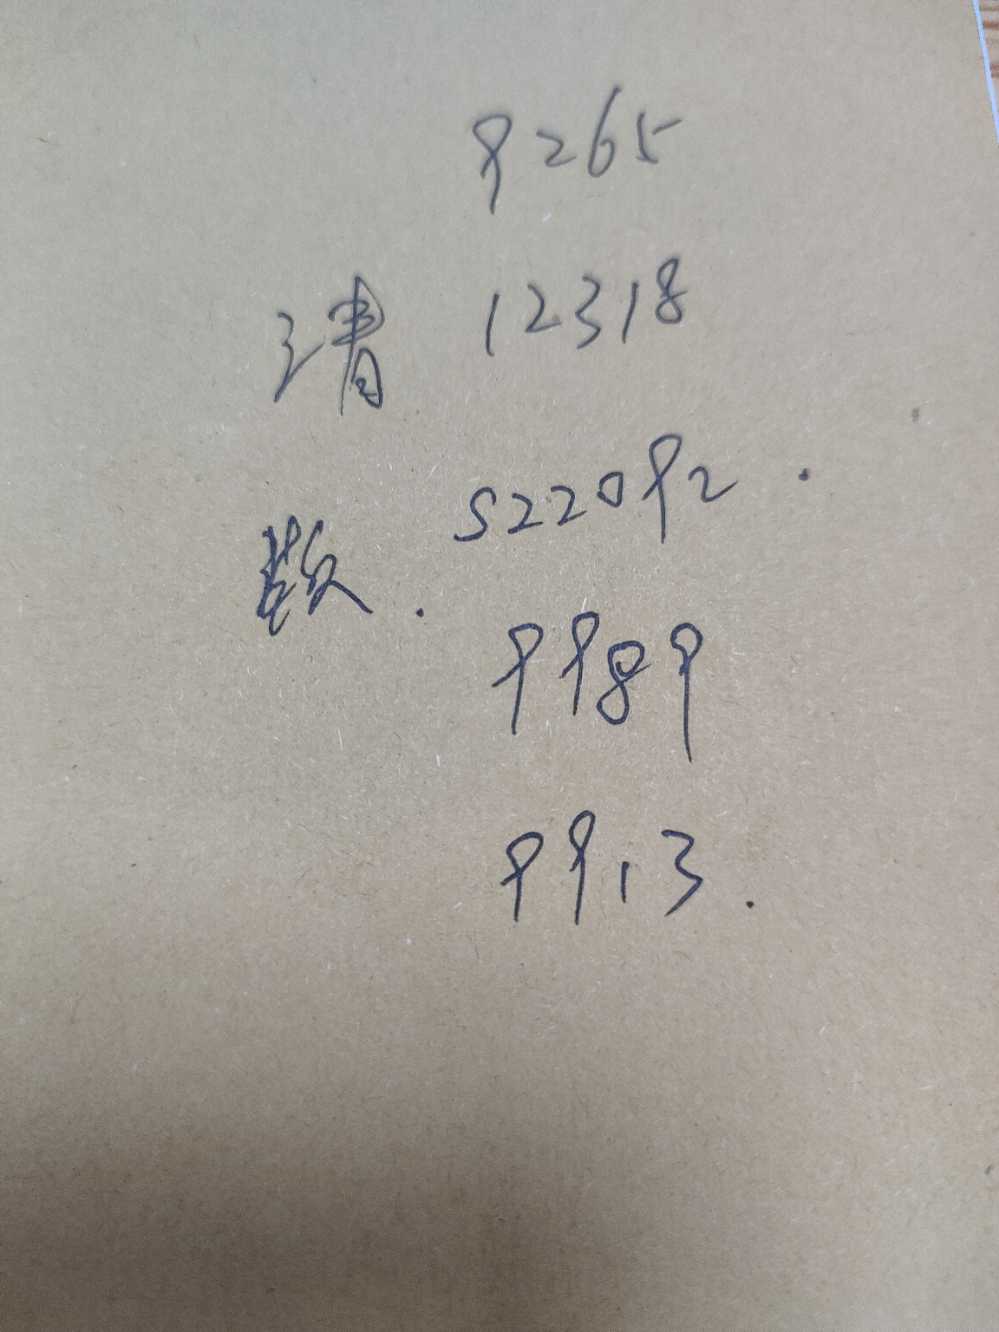 9265
清 12318
522092.
数. 9989
9913.